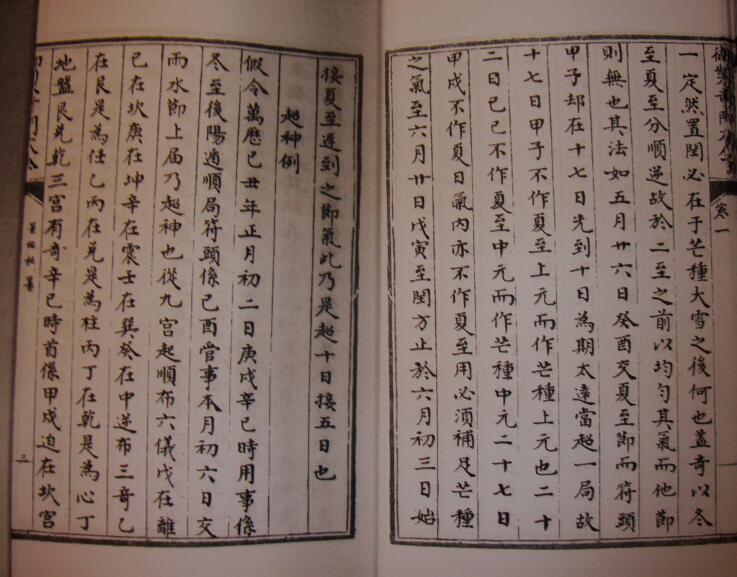 卷一
一定然置閏必在于芒種大雪之後何也蓋奇以冬
至夏至分順逆故於二至之前以均勻其氣而他節
則無也其法如五月廿六日癸酉交夏至節而符頭
甲子却在十七日先到十日為期太遠當超一局故
十七日甲子不作夏至上元而作芒種上元也二十
二日己巳不作夏至中元而作芒種中元二十七日
甲戌不作夏日氣內亦不作夏至用必須補足芒種
之氣至六月廿日戊寅至閏方止於六月初三日始
接夏至遲到之節氣此乃是超十日接五日也
超神例
假令萬歷己丑年正月初二日庚戌辛巳時用事係
冬至後陽遁順局符頭係己酉當事本月初六日交
雨水節上屆乃超神也從九宮起順布六儀戊在離
己在坎庚在坤辛在震壬在巽癸在中逆布三奇乙
在艮是為任乙丙在兌是為柱丙丁在乾是為心丁
地盤艮兌乾三宮有奇辛巳時首係甲戌迫在坎宮
三